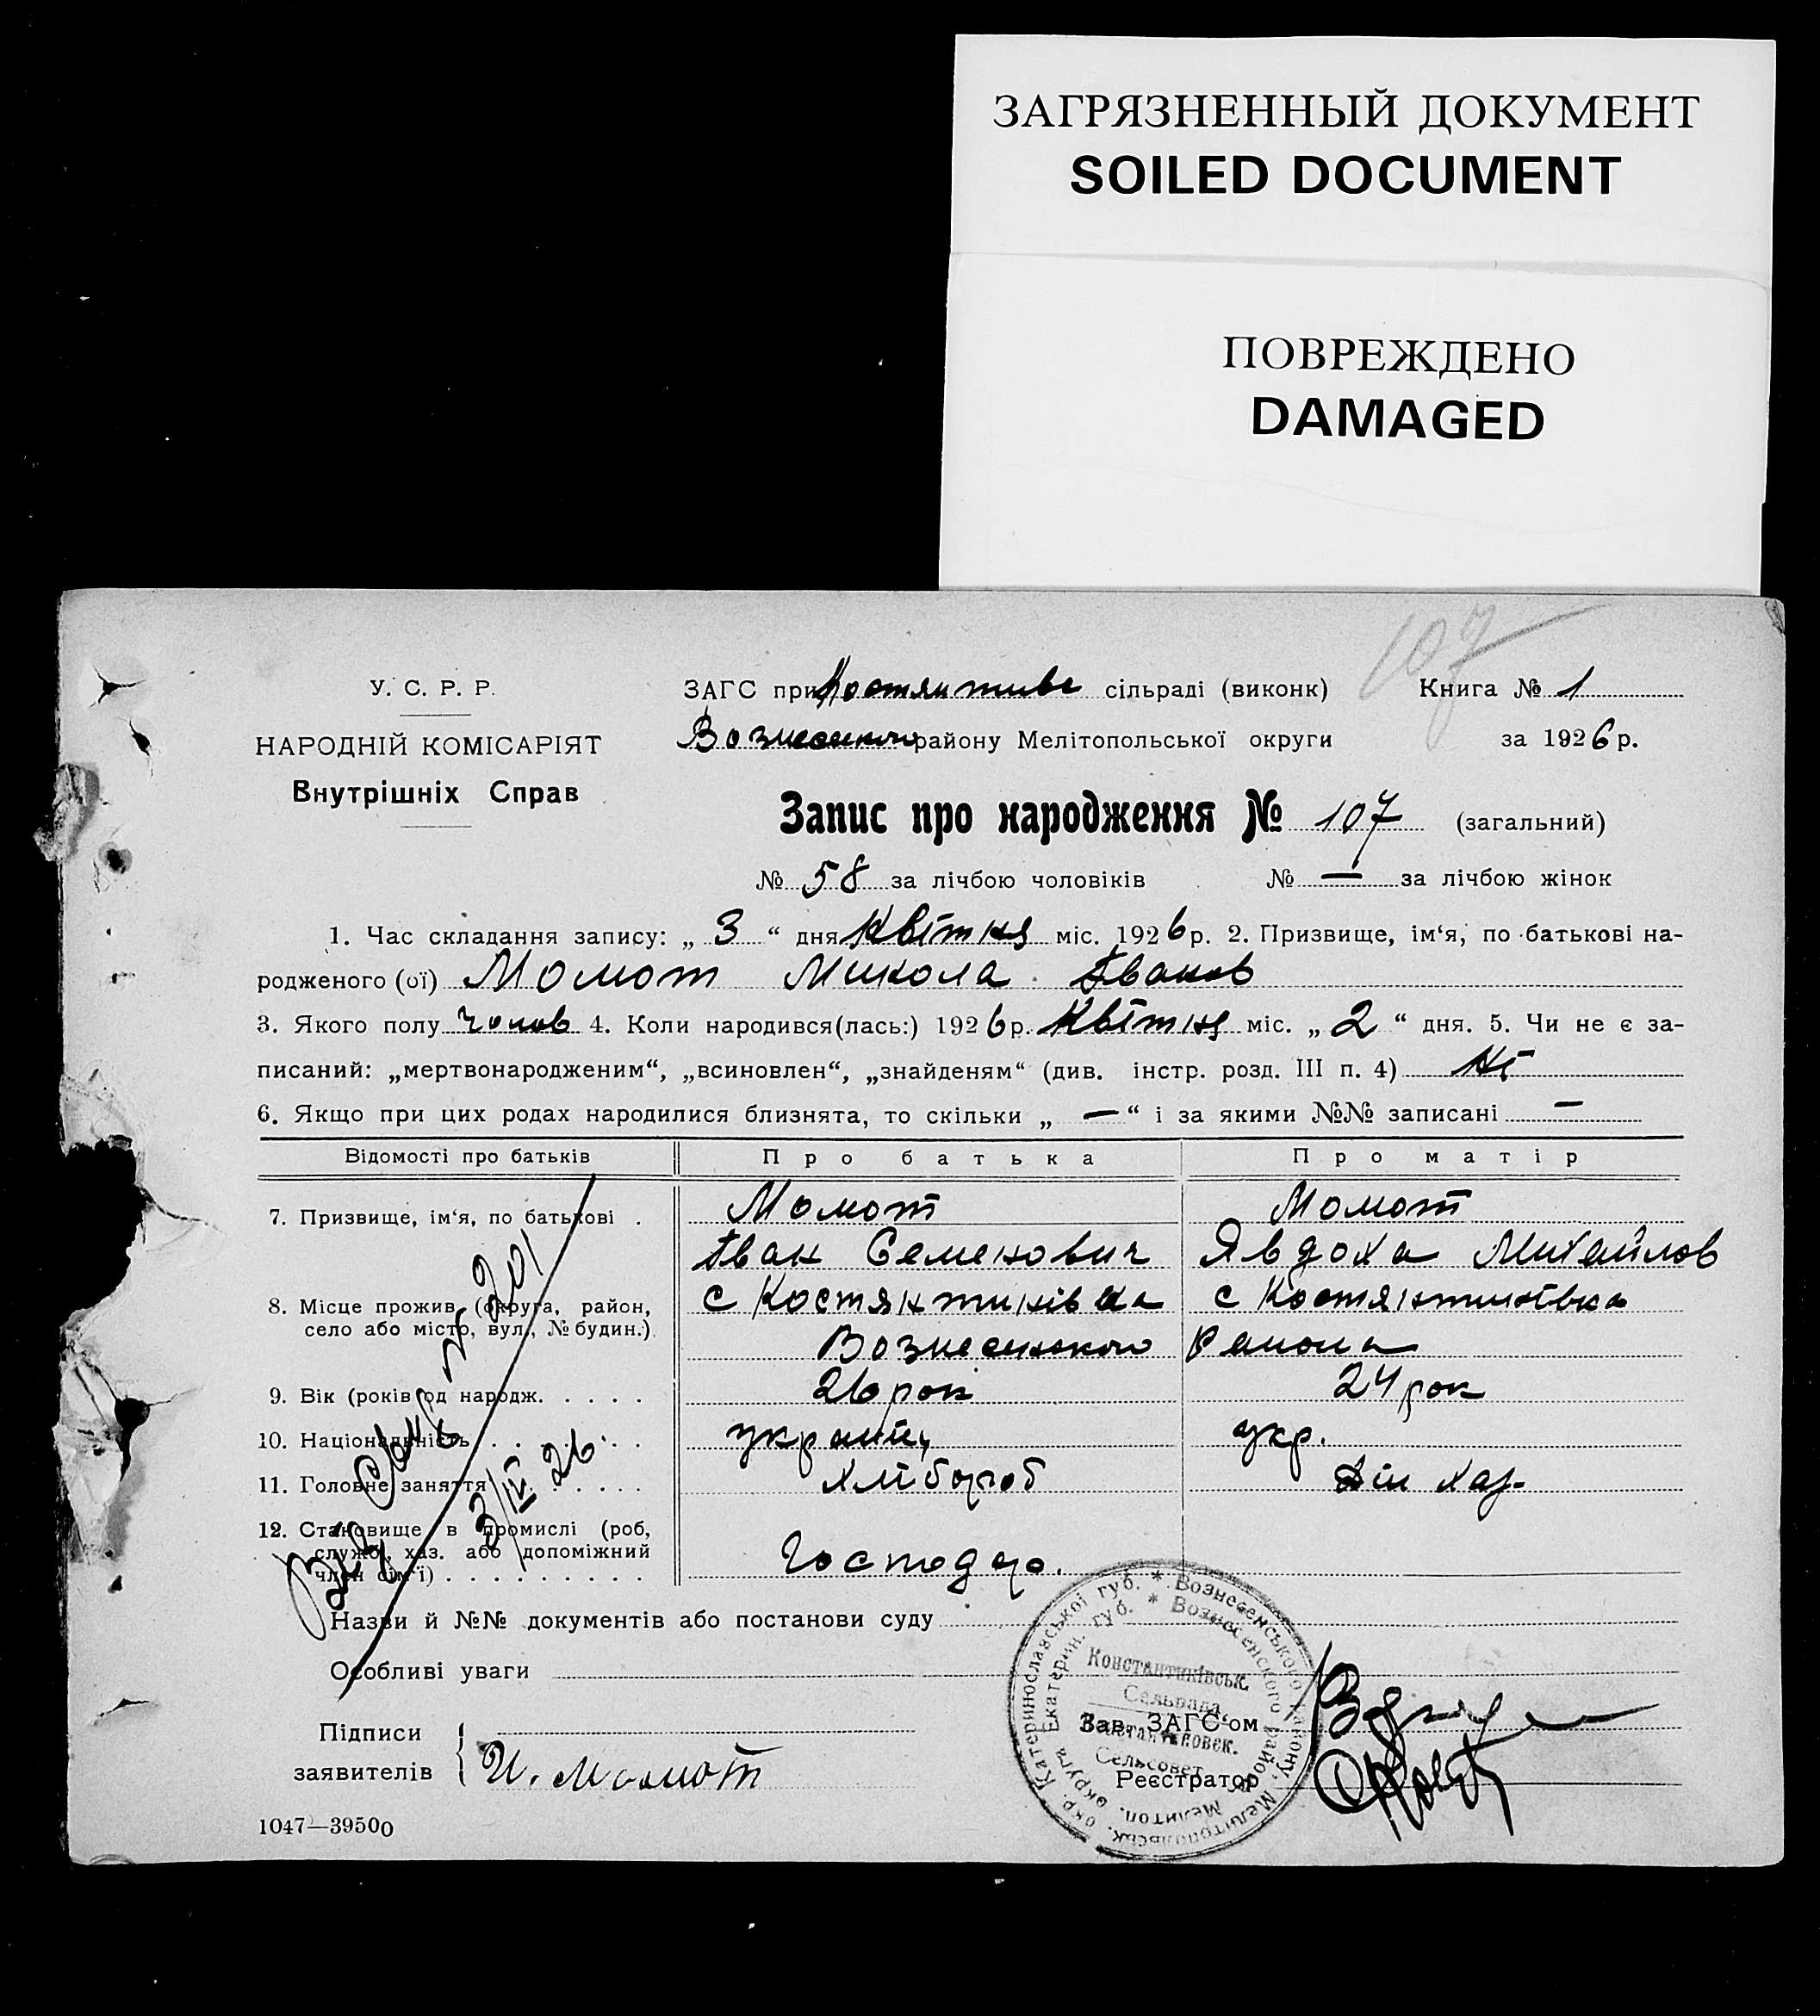 ЗАГРЯЗНЕННЫЙ ДОКУМЕНТ
SOILED DOCUMENT
ПОВРЕЖДЕНО
DAMAGED
107
У. С. Р. Р.
НАРОДНІЙ КОМІСАРІЯТ
Внутрішніх Справ
ЗАГС при Костянтинв сільраді (виконк)
Книга № 1
Вознесенкого району Мелітопольської округи
за 1926 р.
Запис про народження № 107 (загальний)
№ 58 за лічбою чоловіків № — за лічбою жінок
1. Час складання запису: „ 3 “ дня Квітня міс. 1926 р. 2. Призвище, ім‘я, по батькові на-
родженого (ої) Момот Микола Іванов
3. Якого полу Чолов 4. Коли народився(лась:) 1926 р. Квітня міс. „ 2 “ дня. 5. Чи не є за-
писаний: „мертвонародженим“, „всиновлен“, „знайденям“ (див. інстр. розд. III п. 4) Ні
6. Якщо при цих родах народилися близнята, то скільки „ — “ і за якими №№ записані —
Відомості про батьків Про батька Про матір
7. Призвище, ім‘я, по батькові . Момот Момот
Іван Семенович Явдоха Михайлов
8. Місце прожив. (округа, район, с Костянтинівка с Костянтинівка
село або місто, вул., № будин.) Вознесенского Раиона
9. Вік (років од народж. . . . . 26 рок 24 рок
10. Національність . . . . . україн укр.
11. Головне заняття . . . . . Хлібороб Дім хаз.
12. Становище в промислі (роб,
служб, хаз. або допоміжний
член сім‘ї) . . . . . . . . . Господар.
Вид Свид № 201
3/IV 26.
Назви й №№ документів або постанови суду
Особливі уваги
Підписи
заявителів И. Момот
Зав. ЗАГС‘ом
Реєстратор
Катеринославської губ. * Вознесенського району, Мелитопольськ. окр.
Екатерин. губ. * Вознесенского района Мелитоп. округа
Константиківськ.
Сельрада
Константиновск.
Сельсовет
1047—39500